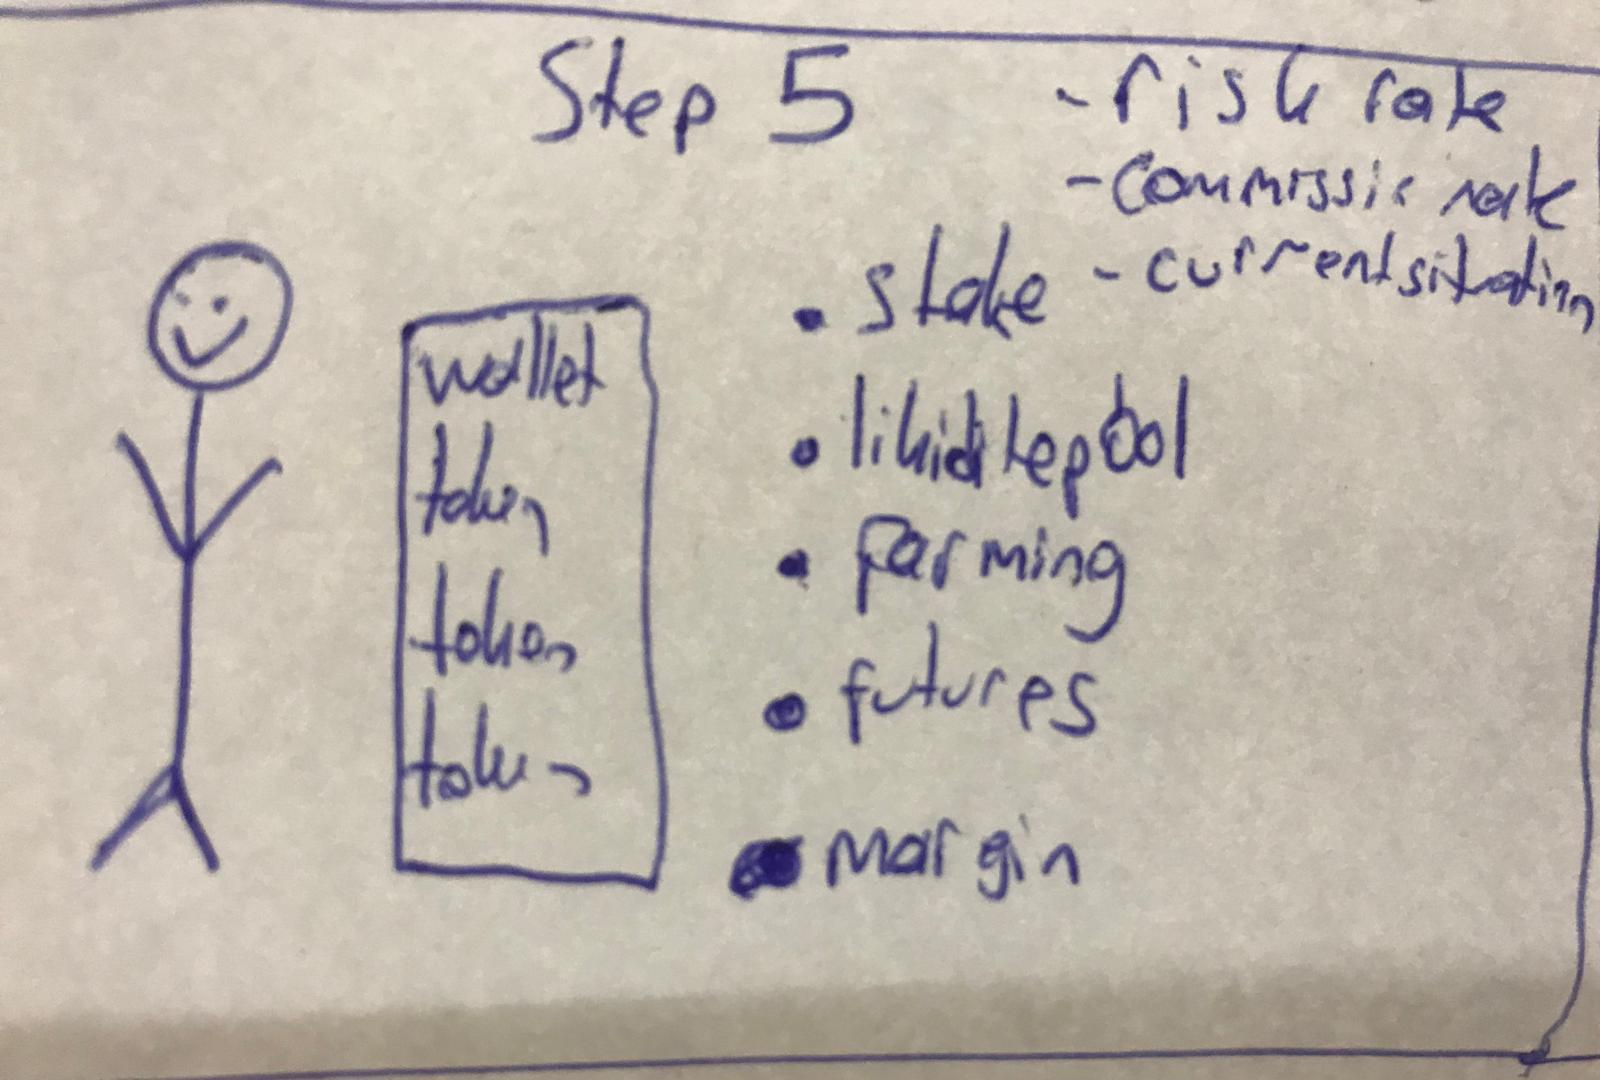 Step 5
- risk rate
- commissic rate
- current situation
wallet
token
token
token
• stake
• likiditepool
• farming
• futures
• margin